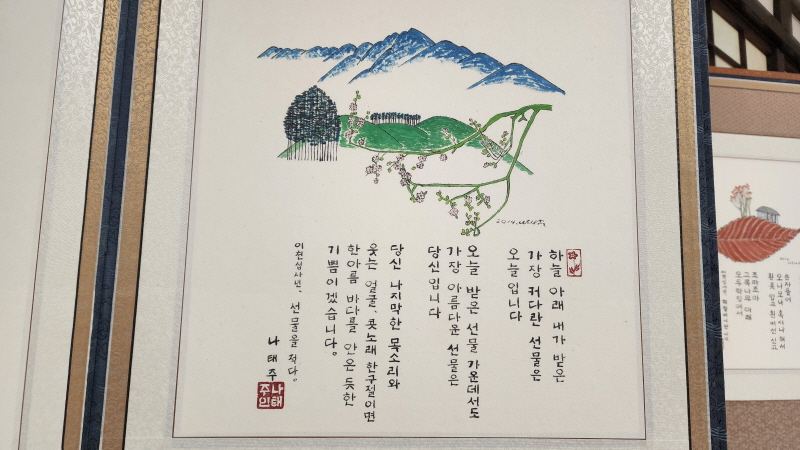 2014. 나태주
하늘 아래 내가 받은
가장 커다란 선물은
오늘입니다
오늘 받은 선물 가운데서도
가장 아름다운 선물은
당신입니다
당신 나지막한 목소리와
웃는 얼굴, 콧노래 한구절이면
한아름 바다를 안은 듯한
기쁨이겠습니다.
이천십사년, 선물을 적다.
나태주
나태
주인